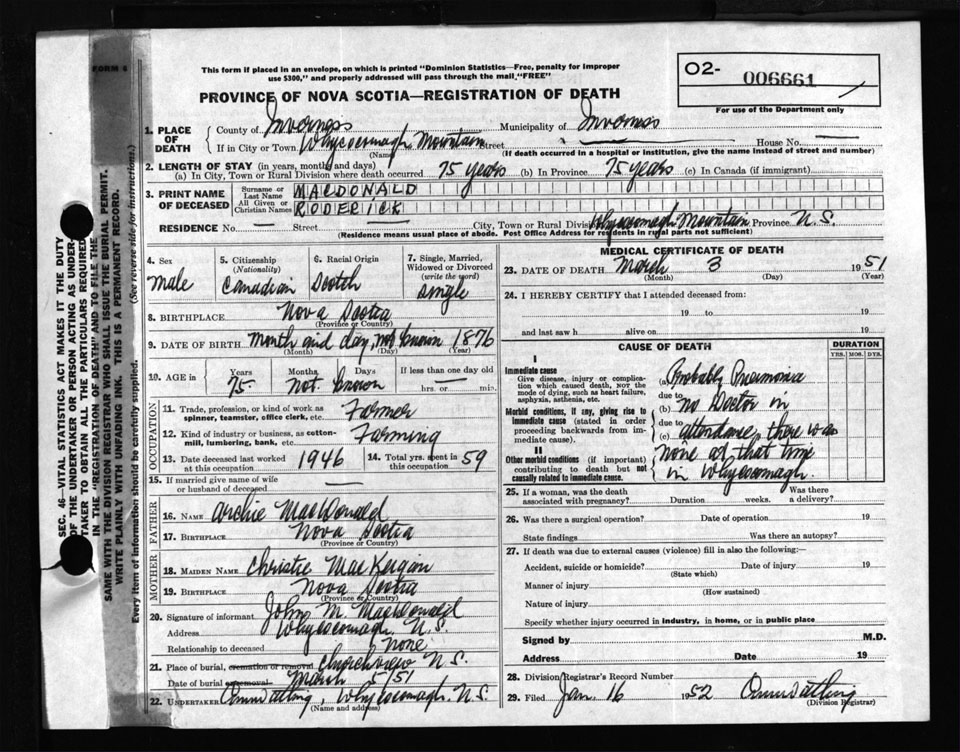 FORM 4
This form if placed in an envelope, on which is printed "Dominion Statistics—Free, penalty for improper
use $300," and properly addressed will pass through the mail "FREE"
O2- 006661
For use of the Department only
PROVINCE OF NOVA SCOTIA—REGISTRATION OF DEATH
1. PLACE OF DEATH { County of Inverness Municipality of Inverness
If in City or Town Whycocomagh Mountain Street — House No. —
(Name) (If death occurred in a hospital or institution, give the name instead of street and number)
2. LENGTH OF STAY (in years, months and days)
(a) In City, Town or Rural Division where death occurred 75 years (b) In Province 75 years (c) In Canada (if immigrant)
3. PRINT NAME OF DECEASED { Surname or Last Name MACDONALD
All Given or Christian Names RODERICK
RESIDENCE No. — Street — City, Town or Rural Division Whycocomagh Mountain Province N.S.
(Residence means usual place of abode. Post Office Address for residents in rural parts not sufficient)
4. Sex Male
5. Citizenship (Nationality) Canadian
6. Racial Origin Scotch
7. Single, Married, Widowed or Divorced (write the word) Single
8. BIRTHPLACE Nova Scotia
(Province or Country)
9. DATE OF BIRTH Month and day, not known 1876
(Month) (Day) (Year)
10. AGE in { Years 75 Months Not Days known If less than one day old — hrs or min.
OCCUPATION
11. Trade, profession, or kind of work as spinner, teamster, office clerk, etc. Farmer
12. Kind of industry or business, as cotton-mill, lumbering, bank, etc. Farming
13. Date deceased last worked at this occupation 1946 14. Total yrs. spent in this occupation 59
15. If married give name of wife or husband of deceased —
FATHER
16. NAME Archie MacDonald
17. BIRTHPLACE Nova Scotia
(Province or Country)
MOTHER
18. MAIDEN NAME Christie MacKeigan
19. BIRTHPLACE Nova Scotia
(Province or Country)
20. Signature of informant John M. MacDonald
Address Whycocomagh N.S.
Relationship to deceased None
21. Place of burial, cremation or removal Churchview N.S.
Date of burial or removal March 5/51
22. UNDERTAKER Whycocomagh, N.S.
(Name and address)
MEDICAL CERTIFICATE OF DEATH
23. DATE OF DEATH March 3 1951
(Month) (Day) (Year)
24. I HEREBY CERTIFY that I attended deceased from:
19 to 19
and last saw h alive on 19
CAUSE OF DEATH
DURATION
YRS. MOS. DYS.
I
Immediate cause
Give disease, injury or complication which caused death, NOT the mode of dying, such as heart failure, asphyxia, asthenia, etc.
(a) Probably Pneumonia
due to
Morbid conditions, if any, giving rise to immediate cause (stated in order proceeding backwards from immediate cause).
(b) no Doctor in
due to
(c) attendance, there was
II
Other morbid conditions (if important) contributing to death but not causally related to immediate cause.
none at that time
in Whycocomagh.
25. If a woman, was the death associated with pregnancy? Duration weeks. Was there a delivery?
26. Was there a surgical operation? Date of operation 19
State findings Was there an autopsy?
27. If death was due to external causes (violence) fill in also the following:—
Accident, suicide or homicide? Date of injury 19
(State which)
Manner of injury
(How sustained)
Nature of injury
Specify whether injury occurred in industry, in home, or in public place
Signed by M.D.
Address Date 19
28. Division Registrar's Record Number
29. Filed Jan. 16 1952
(Division Registrar)
SEC. 46—VITAL STATISTICS ACT MAKES IT THE DUTY
OF THE UNDERTAKER OR PERSON ACTING AS UNDER-
TAKER TO OBTAIN ALL THE PARTICULARS REQUIRED
IN THE "REGISTRATION OF DEATH" AND TO FILE THE
SAME WITH THE DIVISION REGISTRAR WHO SHALL ISSUE THE BURIAL PERMIT.
WRITE PLAINLY WITH UNFADING INK. THIS IS A PERMANENT RECORD.
Every item of information should be carefully supplied. (See reverse side for instructions.)